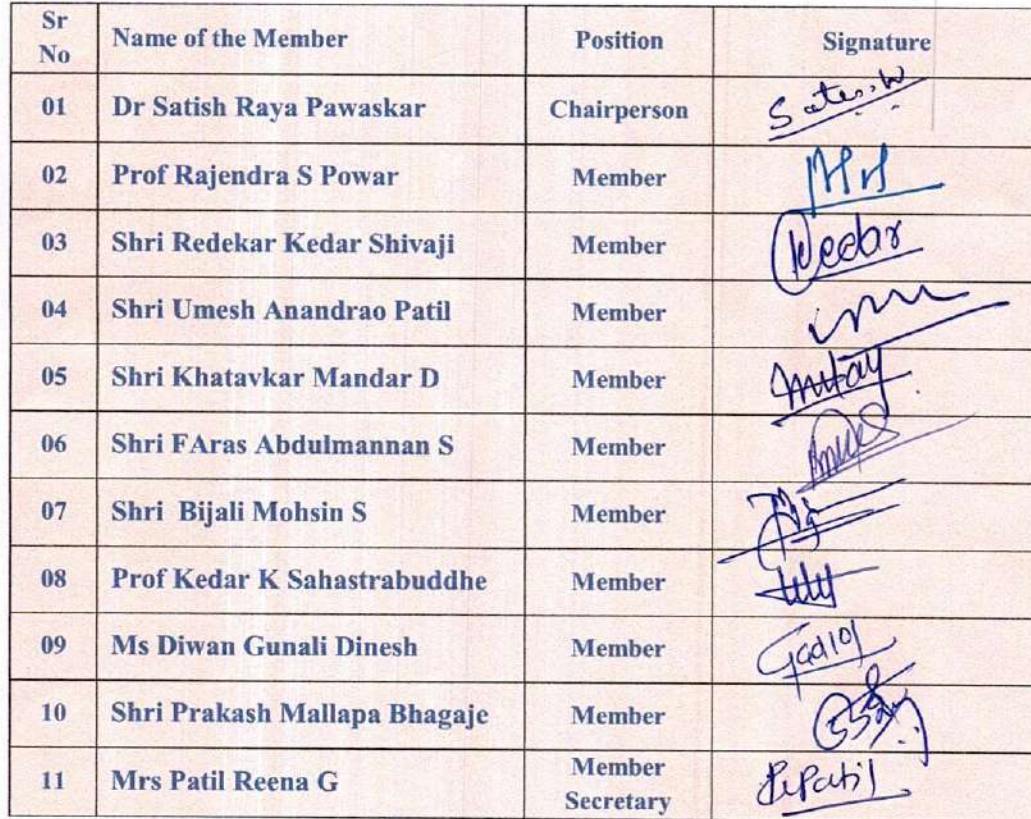 Sr No Name of the Member Position Signature
01 Dr Satish Raya Pawaskar Chairperson
02 Prof Rajendra S Powar Member
03 Shri Redekar Kedar Shivaji Member Kedar
04 Shri Umesh Anandrao Patil Member
05 Shri Khatavkar Mandar D Member
06 Shri FAras Abdulmannan S Member
07 Shri Bijali Mohsin S Member
08 Prof Kedar K Sahastrabuddhe Member
09 Ms Diwan Gunali Dinesh Member
10 Shri Prakash Mallapa Bhagaje Member
11 Mrs Patil Reena G Member Secretary